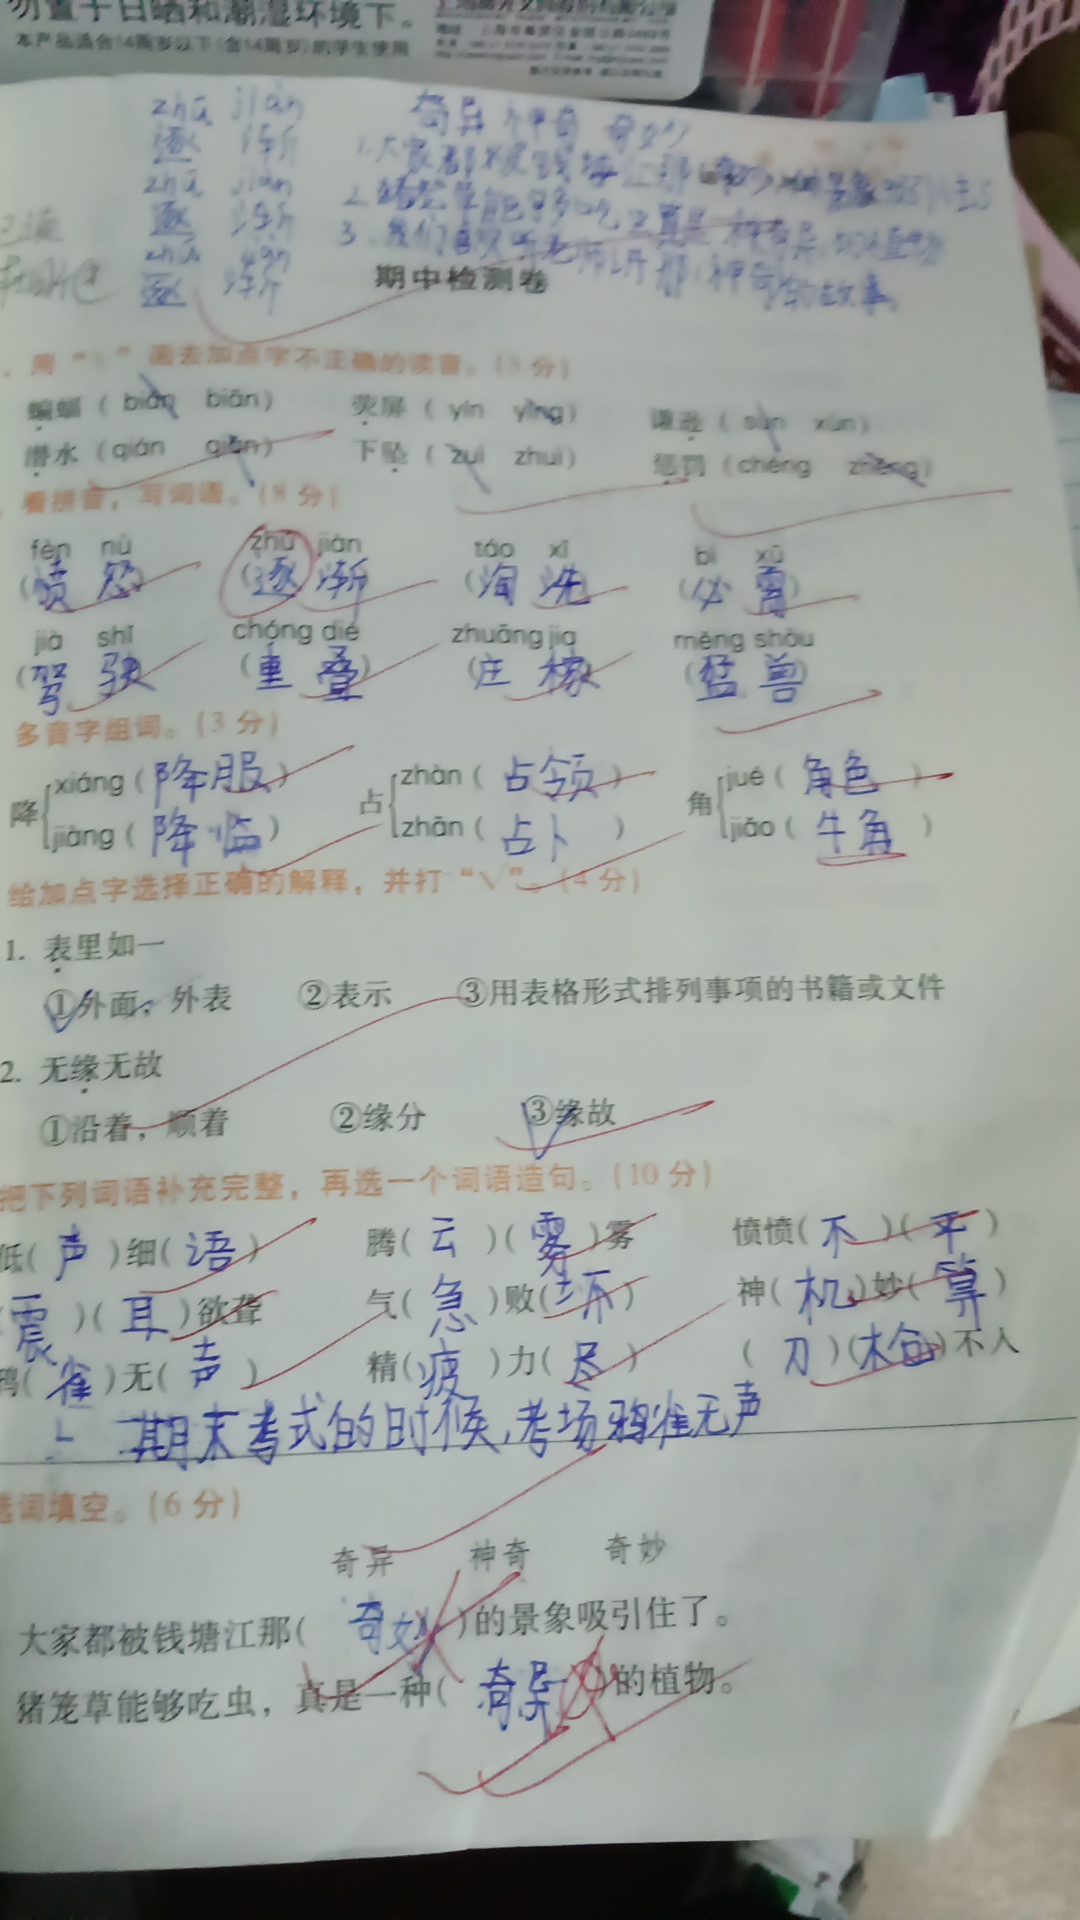 勿置于日晒和潮湿环境下。
本产品适合14周岁以下(含14周岁)的学生使用
zhú jiàn
逐 渐
zhú jiàn
逐 渐
zhú jiàn
逐 渐
奇异 神奇 奇妙
1.大家都被钱塘江那
2.猪笼草能够吃虫真是一种奇异的植物
3.我们喜欢听老师讲那神奇的故事
期中检测卷
、用“\”画去加点字不正确的读音。(3分)
蝙蝠(biān biǎn) 荧屏(yín yíng) 谦逊(sùn xùn)
潜水(qián qiǎn) 下坠(zuì zhuì) 惩罚(chéng zhěng)
、看拼音，写词语。(8分)
fèn nù zhú jiàn táo xǐ bì xū
(愤怒) (逐渐) (淘洗) (必需)
jià shǐ chóng dié zhuāng jia měng shòu
(驾驶) (重叠) (庄稼) (猛兽)
多音字组词。(3分)
xiáng(降服) zhàn(占领) jué(角色)
降 占 角
jiàng(降临) zhān(占卜) jiǎo(牛角)
给加点字选择正确的解释，并打“√”。(4分)
1. 表里如一
①外面，外表 ②表示 ③用表格形式排列事项的书籍或文件
2. 无缘无故
①沿着，顺着 ②缘分 ③缘故
把下列词语补充完整，再选一个词语造句。(10分)
低(声)细(语) 腾(云)(雾)雾 愤愤(不)(平)
(震)(耳)欲聋 气(急)败(坏) 神(机)妙(算)
鸦(雀)无(声) 精(疲)力(尽) (刀)(枪)不入
期末考式的时候,考场鸦雀无声
选词填空。(6分)
奇异 神奇 奇妙
大家都被钱塘江那(奇妙)的景象吸引住了。
猪笼草能够吃虫，真是一种(奇异)的植物。